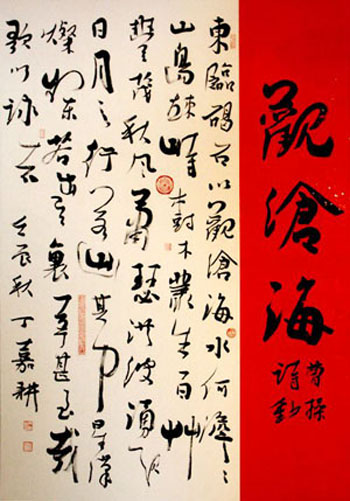 觀滄海
曹操
東臨碣石以觀滄海水何澹〻
山島竦峙樹木叢生百艸
豐茂秋風蕭瑟洪波湧起
日月之行若出其中星漢
燦爛若出其裏幸甚至哉
歌以詠志 壬辰秋 丁嘉耕